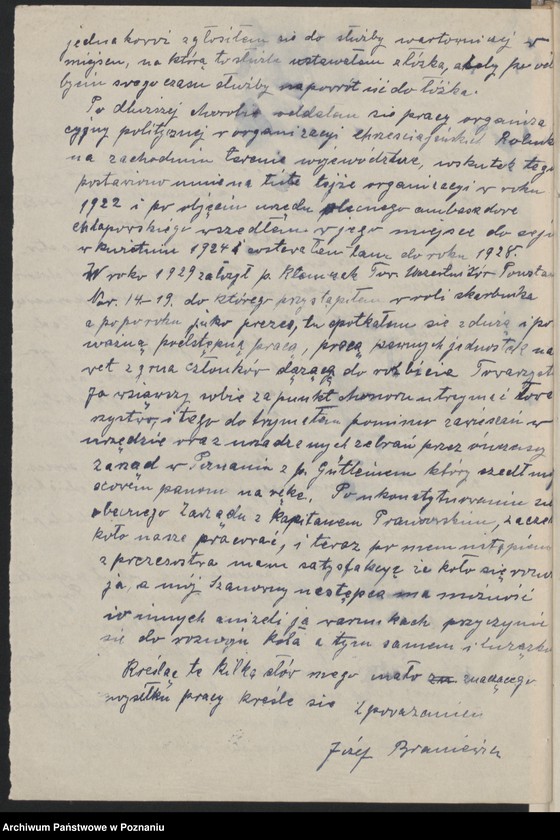 jednakowoż zgłosiłem się do służby wartowniczej w
miejscu, na którą to służbę wstawałem z łóżka, ażeby po od
byciu swego czasu służby napowrót iść do łóżka.
Po dłuższej chorobie oddałem się pracy organiza
cyjnej politycznej w organizacji chrześcijańskich Rolnik
na zachodnim terenie województwa, wskutek tego
postawiono mnie na tejże organizacji w roku
1922 i po objęciu urzędu ambasadora
Chłapowskiego wszedłem w jego miejsce do
w kwietniu 1924 i zostałem tam do roku 1928.
W roku 1929 założył p. Tow. Uczestników Powstan
14-19. do którego przystąpiłem w roli skarbnika
a po pół roku jako prezes, tu spotkałem się z dużą i po
ważną podstępną pracą, pracą pewnych jednostek na
wet z grona członków dążącą do rozbicia Towarzyst
Ja wziąwszy sobie za punkt honoru utrzymać towa
rzystwo, i tego dotrzymałem pomimo zawieszeń w
urzędzie oraz urządzanych zebrań przez ówczesny
zarząd w Poznaniu z p. który szedł miej
scowym panom na rękę. Po ukonstytuowaniu się
obecnego Zarządu z kapitanem zaczęło
koło nasze pracować, i teraz po mem ustąpieniu
z prezesostwa mam satysfakcję że koło się rozwi
ja, a mój Szanowny następca ma możność
w innych aniżeli ja warunkach przyczynić
się do rozwoju koła a tym samem i Związku
Kreśląc te kilka słów mego mało znaczącego
wysiłku pracy kreślę się z poważaniem
Józef Braniewicz
Archiwum Państwowe w Poznaniu